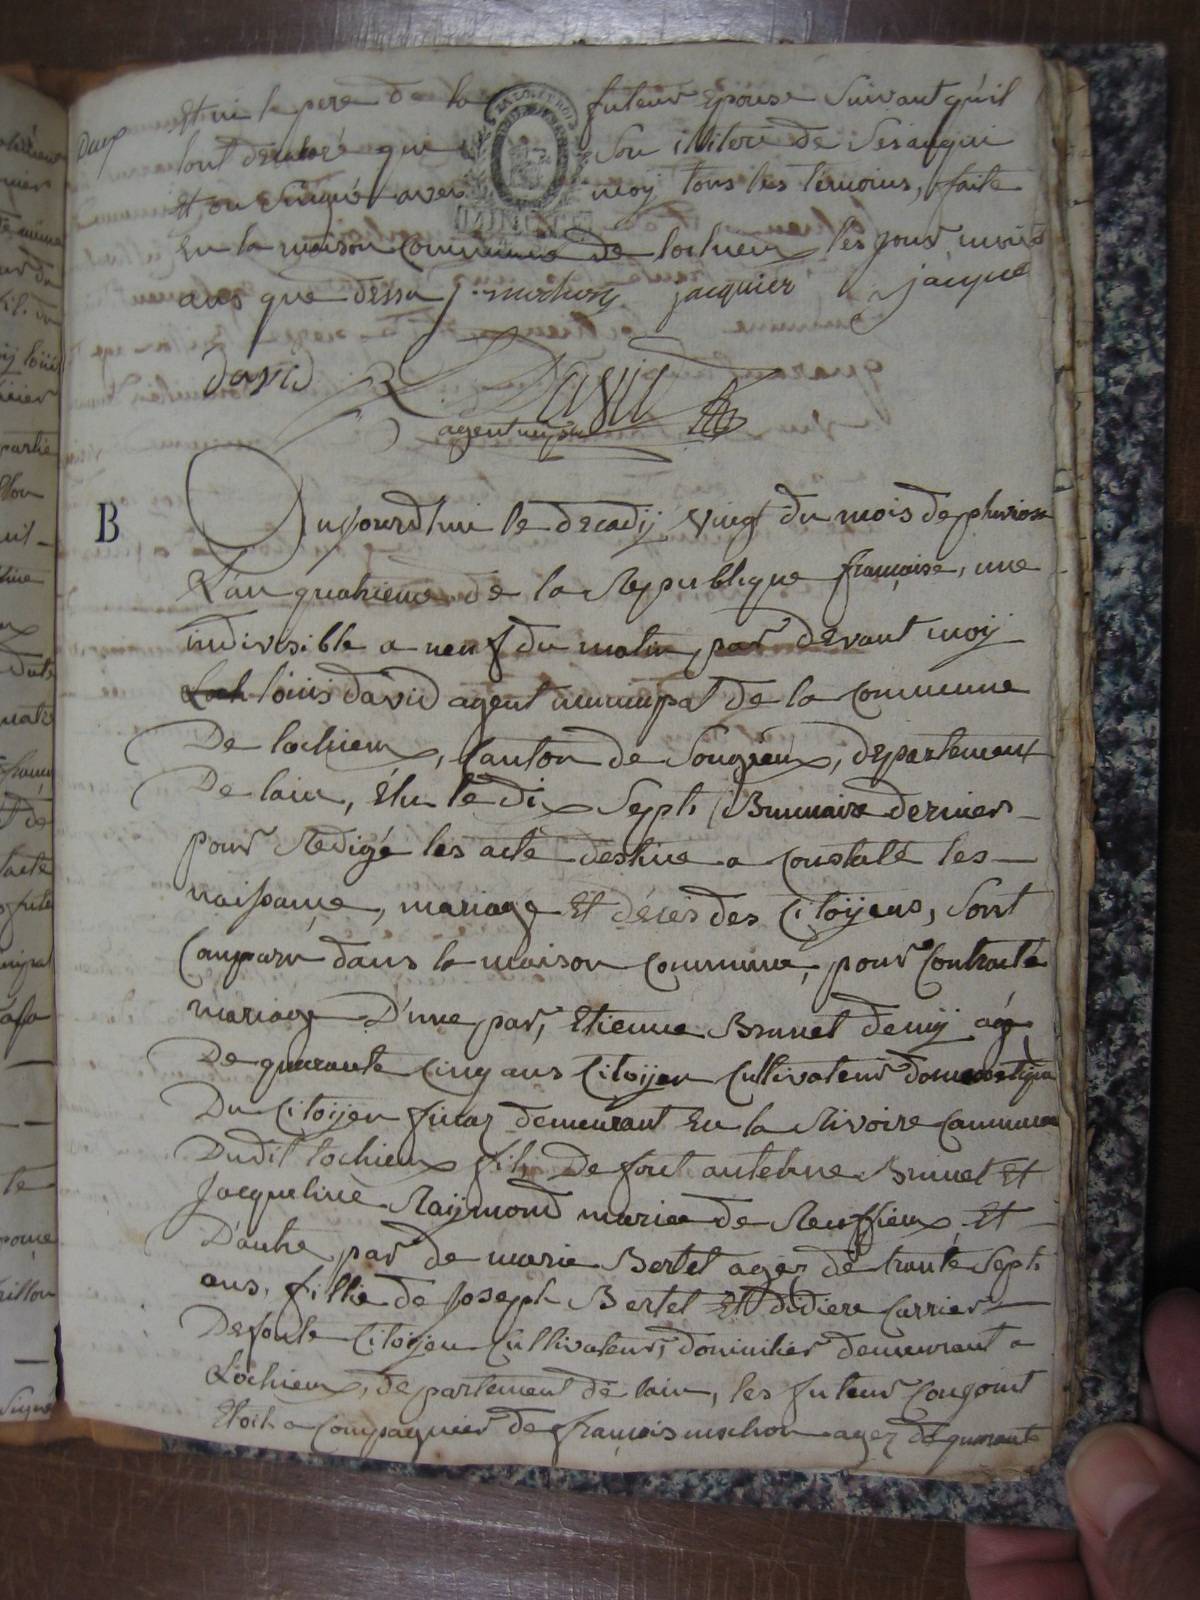 Et ni le pere de la future Epouse Suivant qu'il
Deux
tont declaré que Son ilitere de Ses auqu
et on Signé avec moy tous les temoins, faite
En la maison Commune de lochieux les jour mois
ans que dessu f. mochon jacquier jacque
david David
agent mupal
B
Aujourdhui le decadij vingt du mois de pluviose
L'an quatrieme de la Republique francaise, une
indivisible a neuf du matin, par devant moij
Loch loüis david agent municipal de la Commune
De lochieux, Canton de Songieux, departement
De lain, Elu le dix Sept Brumaire dernier
pour Redigé les acte destine a Constalé les
naissance, mariage Et décès des Citoijens, Sont
Comparu dans la maison Commune, pour Contracté
mariage D'une par, Etienne Brunet demij agé
De quarante Cinq ans Citoijen Cultivateur domestique
Du Citoijen demeurant En la Rivoire Commune
Dudit lochieux fils De fut antelme Brunet Et
Jacqueline Raijmond mariée de Ruffieux Et
D'autre par de marie Bertet agéz de trante Sept
ans, fillie de Joseph Bertet Et didiere Carrier
Defonte Citoijen Cultivateur, dominilier demeurant a
Lochieux, departement de lain, les futeur Congoint
Etoit a Compagnier de francois mochon agez de quarante